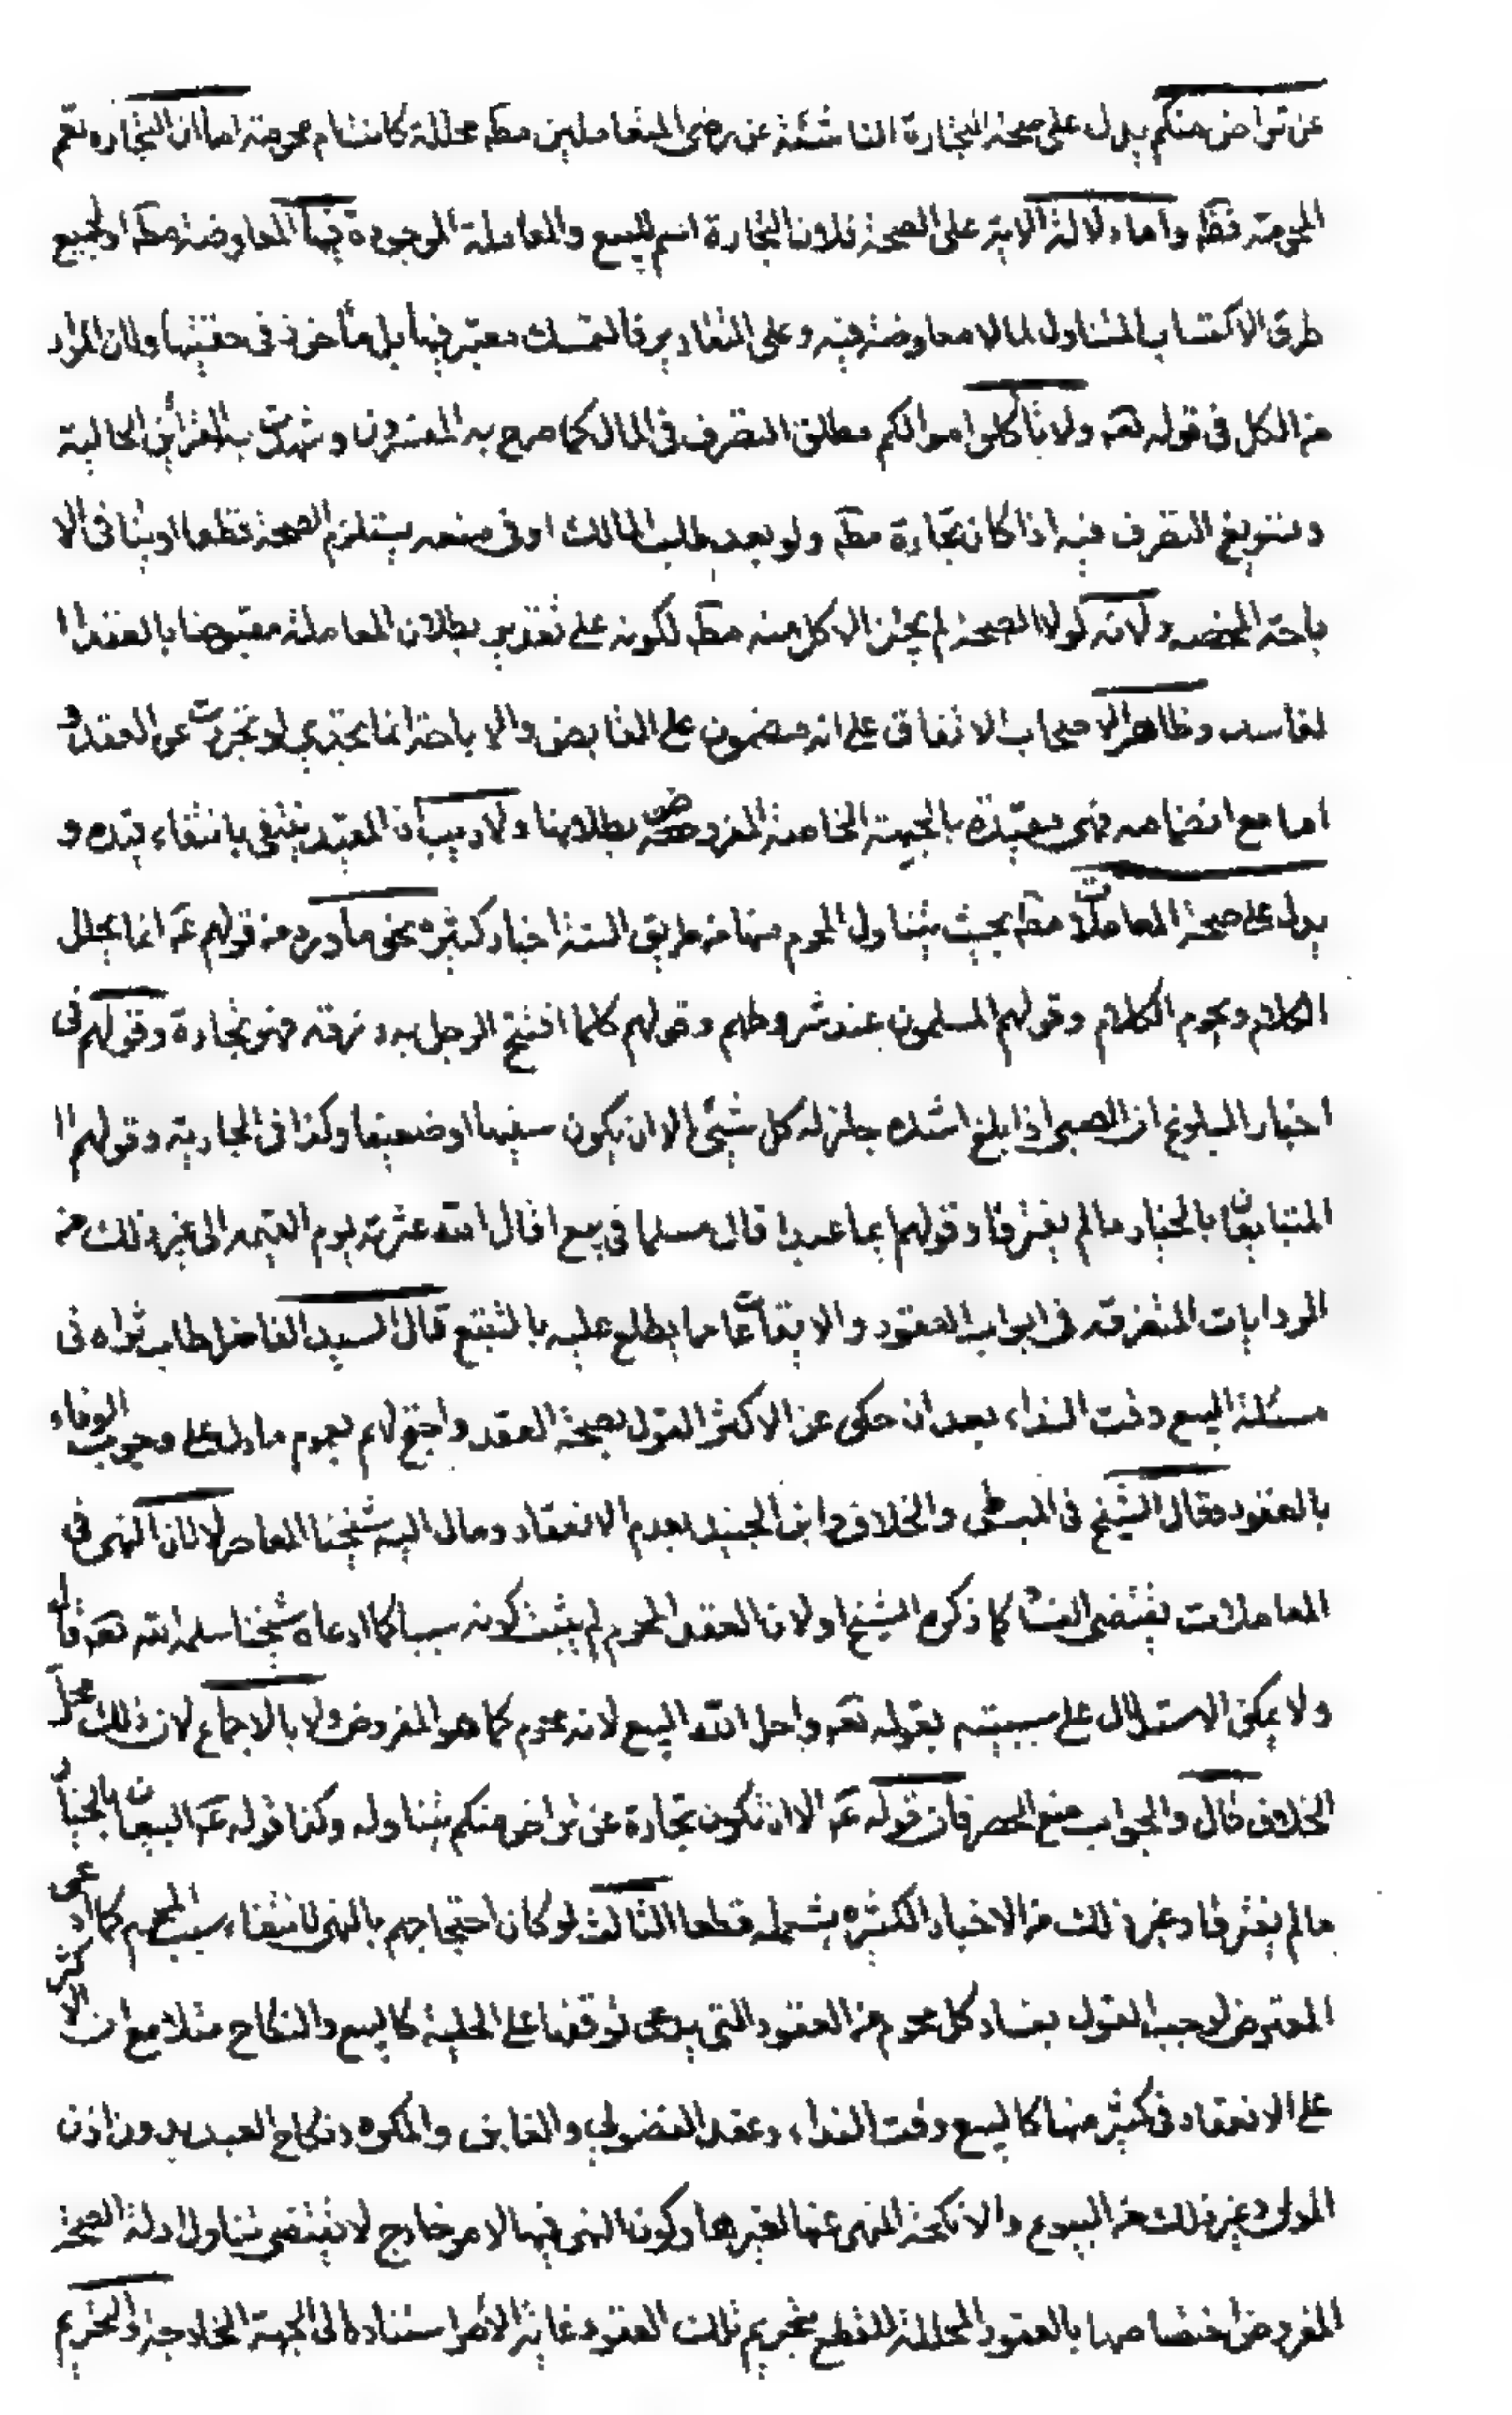 عن تراض منكم يدل على صحة التجارة الناشئة عن رضى المتعاملين مطه محللة كانت ام محرمته اما ان التجاره تعم
المحرمته فظه واما دلالة الاية على الصحة فلان التجارة اسم للبيع والمعاملة الموجودة فيها المعاوضة مطه او لجميع
طرق الاكتساب المتناول لما لا معاوضة فيه وعلى التقاديرفالتمسك معتبر فيها بل مأخوذ في حقيقتها ولان المراد
من الاكل في قوله تعه ولا تأكلوا اموالكم مطلق التصرف في المال كما صرح به المفسرون وشهدت به القرائن الحالية
وتسويغ التصرف فيه اذا كان تجارة مطه ولو بعد طلب المالك او في منعه يستلزم الصحة قطعا اذ ينافي الا
باحة المحضه ولانه لولا الصحة لم يجز الاكل منه مطه لكونه على تقدير بطلان المعاملة مقبوضا بالعقد ا
لفاسد وظاهر الاصحاب الاتفاق على انه مضمون على القابض والاباحة انما يجدي لو تجردت عن العقد و
اما مع انضمامه فهي مقيدة بالجهة الخاصة المفروض بطلانها ولا ريب ان المقيد ينتفي بانتفاء قيده و
يدل على صحة المعاملات مطه بحيث يتناول المحرم منها من طريق السنة اخبار كثيره نحو ما ورد من قولهم عه انما يحلل
الكلام ويحرم الكلام وقولهم المسلمون عند شروطهم وقولهم كلما افتتح الرجل به رزقه فهو تجارة وقولهم في
اخبار البلوغ ان الصبي اذا بلغ اشده جاز له كل شيئ الا ان يكون سفيها او ضعيفا وكذا في الجارية وقولهم ا
المتبايعان بالخيار ما لم يفترقا وقولهم ايما عبد اقال مسلما في بيع اقال الله عثرته يوم القيمه الى غير ذلك من
الروايات المتفرقه في ابواب العقود والايقاعات مما يطلع عليه بالتتبع قال السيد الفاضل طاب ثراه في
مسئلة البيع وقت النداء بعد ان حكى عن الاكثر القول بصحة العقد واحتج لهم بعموم ما دل على وجوب الوفاء
بالعقود وقال الشيخ في المبسوط والخلاف وابن الجنيد بعدم الانعقاد ومال اليه شيخنا المعاصر لا لان النهي في
المعاملات يقتضي الفساد كما ذكره الشيخ او لان العقد المحرم لم يثبت كونه سببا كما ادعاه شيخنا سلمه الله تعه قال
ولا يمكن الاستدلال على سببيته بقوله تعه واحل الله البيع لانه محرم كما هو المفروض ولا بالاجماع لان ذلك محل
الخلاف قال والجواب منع الحصر فان قوله عه الا ان تكون تجارة عن تراض منكم يتناوله وكذا قوله عه البيعان بالخيار
مالم يفترقا وغير ذلك من الاخبار الكثيره يشمله قطعا الثالث لو كان احتجاجهم بالنهي لانتفاء سبب المحرم كما ادعى
المعترض لوجب القول بفساد كل محرم من العقود التي يدعى توقفها على الحلية كالبيع والنكاح مثلا مع ان الاكثر
على الانعقاد في كثير منها كالبيع وقت النداء وعقد الفضولي والغابن والمكره ونكاح العبد بدون اذن
المولى وغير ذلك من البيوع والانكحة المنهى عنها لغيرها وكون النهي فيها لامر خارج لا يقتضي تناول ادلة الصحة
المفروض اختصاصها بالعقود المحللة للقطع بتحريم تلك العقود غاية الامر استناده الى الجهة الخارجة والتحريم